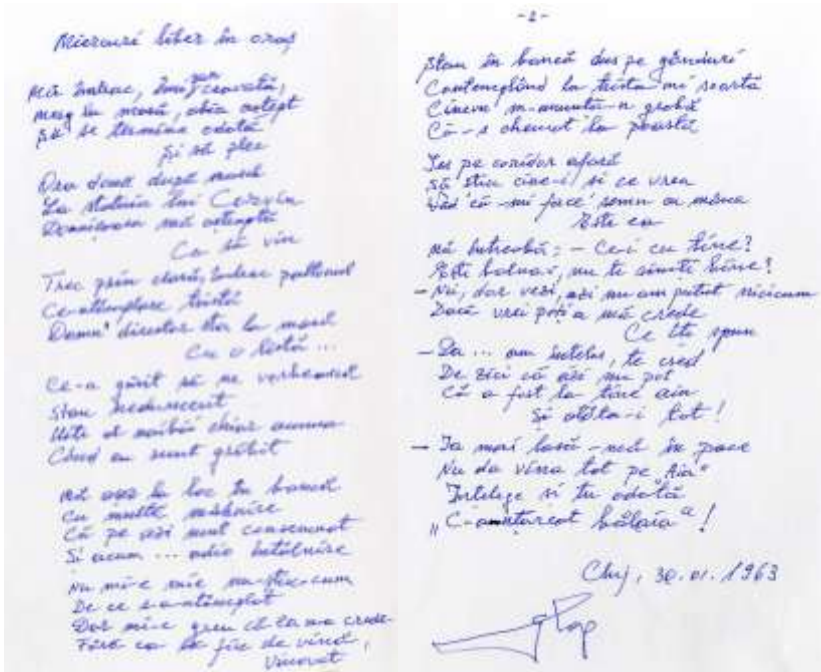 Miercuri liber în oraș
Mă îmbrac, îmi pun cravată,
merg la masă, abia aștept
Să se termine odată
Și să plec
Ora două după masă
La statuia lui Corvin
Domnișoara mă așteaptă
Ca să vin
Trec prin clasă, îmbrac paltonul
Ce-ntâmplare tristă
Domn' director sta la masă
Cu o listă ...
Ce-a găsit să ne vorbească
Stau nedumerit
Uite al naibii chiar acuma
Când eu sunt grăbit
Mă așez la loc în bancă
Cu multă mâhnire
Că pe azi sunt consemnat
Și acum ... adio întâlnire
Nu mi-e mie nu-știu-cum
De ce s-a-ntâmplat
Dar mi-e greu că la m-a crede
Fără ca să fiu de vină,
Vinovat
-2-
Stau în bancă dus pe gânduri
Contemplând la trista-mi soartă
Cineva m-anunță-n grabă
Că-s chemat la poartă
Ies pe coridor afară
Să știu cine-i și ce vrea
Văd că-mi face semn cu mâna
Este ea
Mă întreabă: - Ce-i cu tine?
Ești bolnav, nu te simți bine?
- Nu, dar vezi, azi nu am putut nicicum
Dacă vrei poți a mă crede
Ce îți spun
- Da ... am înțeles, te cred
De zici că azi nu pot
Că a fost la tine aia
Și asta-i tot!
- Ia mai lasă-mă în pace
Nu da vina tot pe "Aia"
Înțelege și tu odată
"C-am-ntârcat bălaia"!
Cluj, 30.01.1963